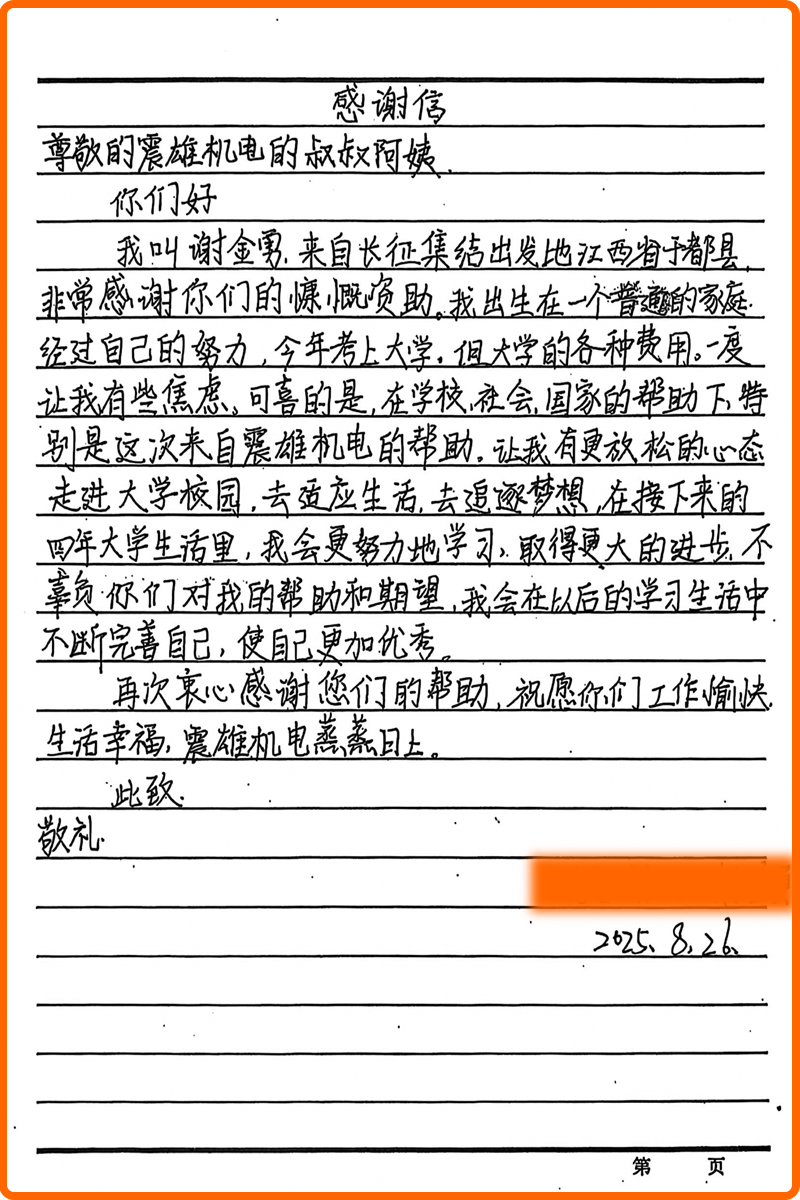 感谢信
尊敬的震雄机电的叔叔阿姨.
你们好
我叫谢金勇,来自长征集结出发地江西省于都县,
非常感谢你们的慷慨资助。我出生在一个普通的家庭
经过自己的努力,今年考上大学,但大学的各种费用。一度
让我有些焦虑。可喜的是,在学校,社会,国家的帮助下,特
别是这次来自震雄机电的帮助。让我有更放松的心态
走进大学校园,去适应生活,去追逐梦想,在接下来的
四年大学生活里,我会更努力地学习,取得更大的进步,不
辜负你们对我的帮助和期望,我会在以后的学习生活中
不断完善自己,使自己更加优秀。
再次衷心感谢您们的帮助,祝愿你们工作愉快,
生活幸福,震雄机电蒸蒸日上。
此致.
敬礼.
2025.8.26.
第 页